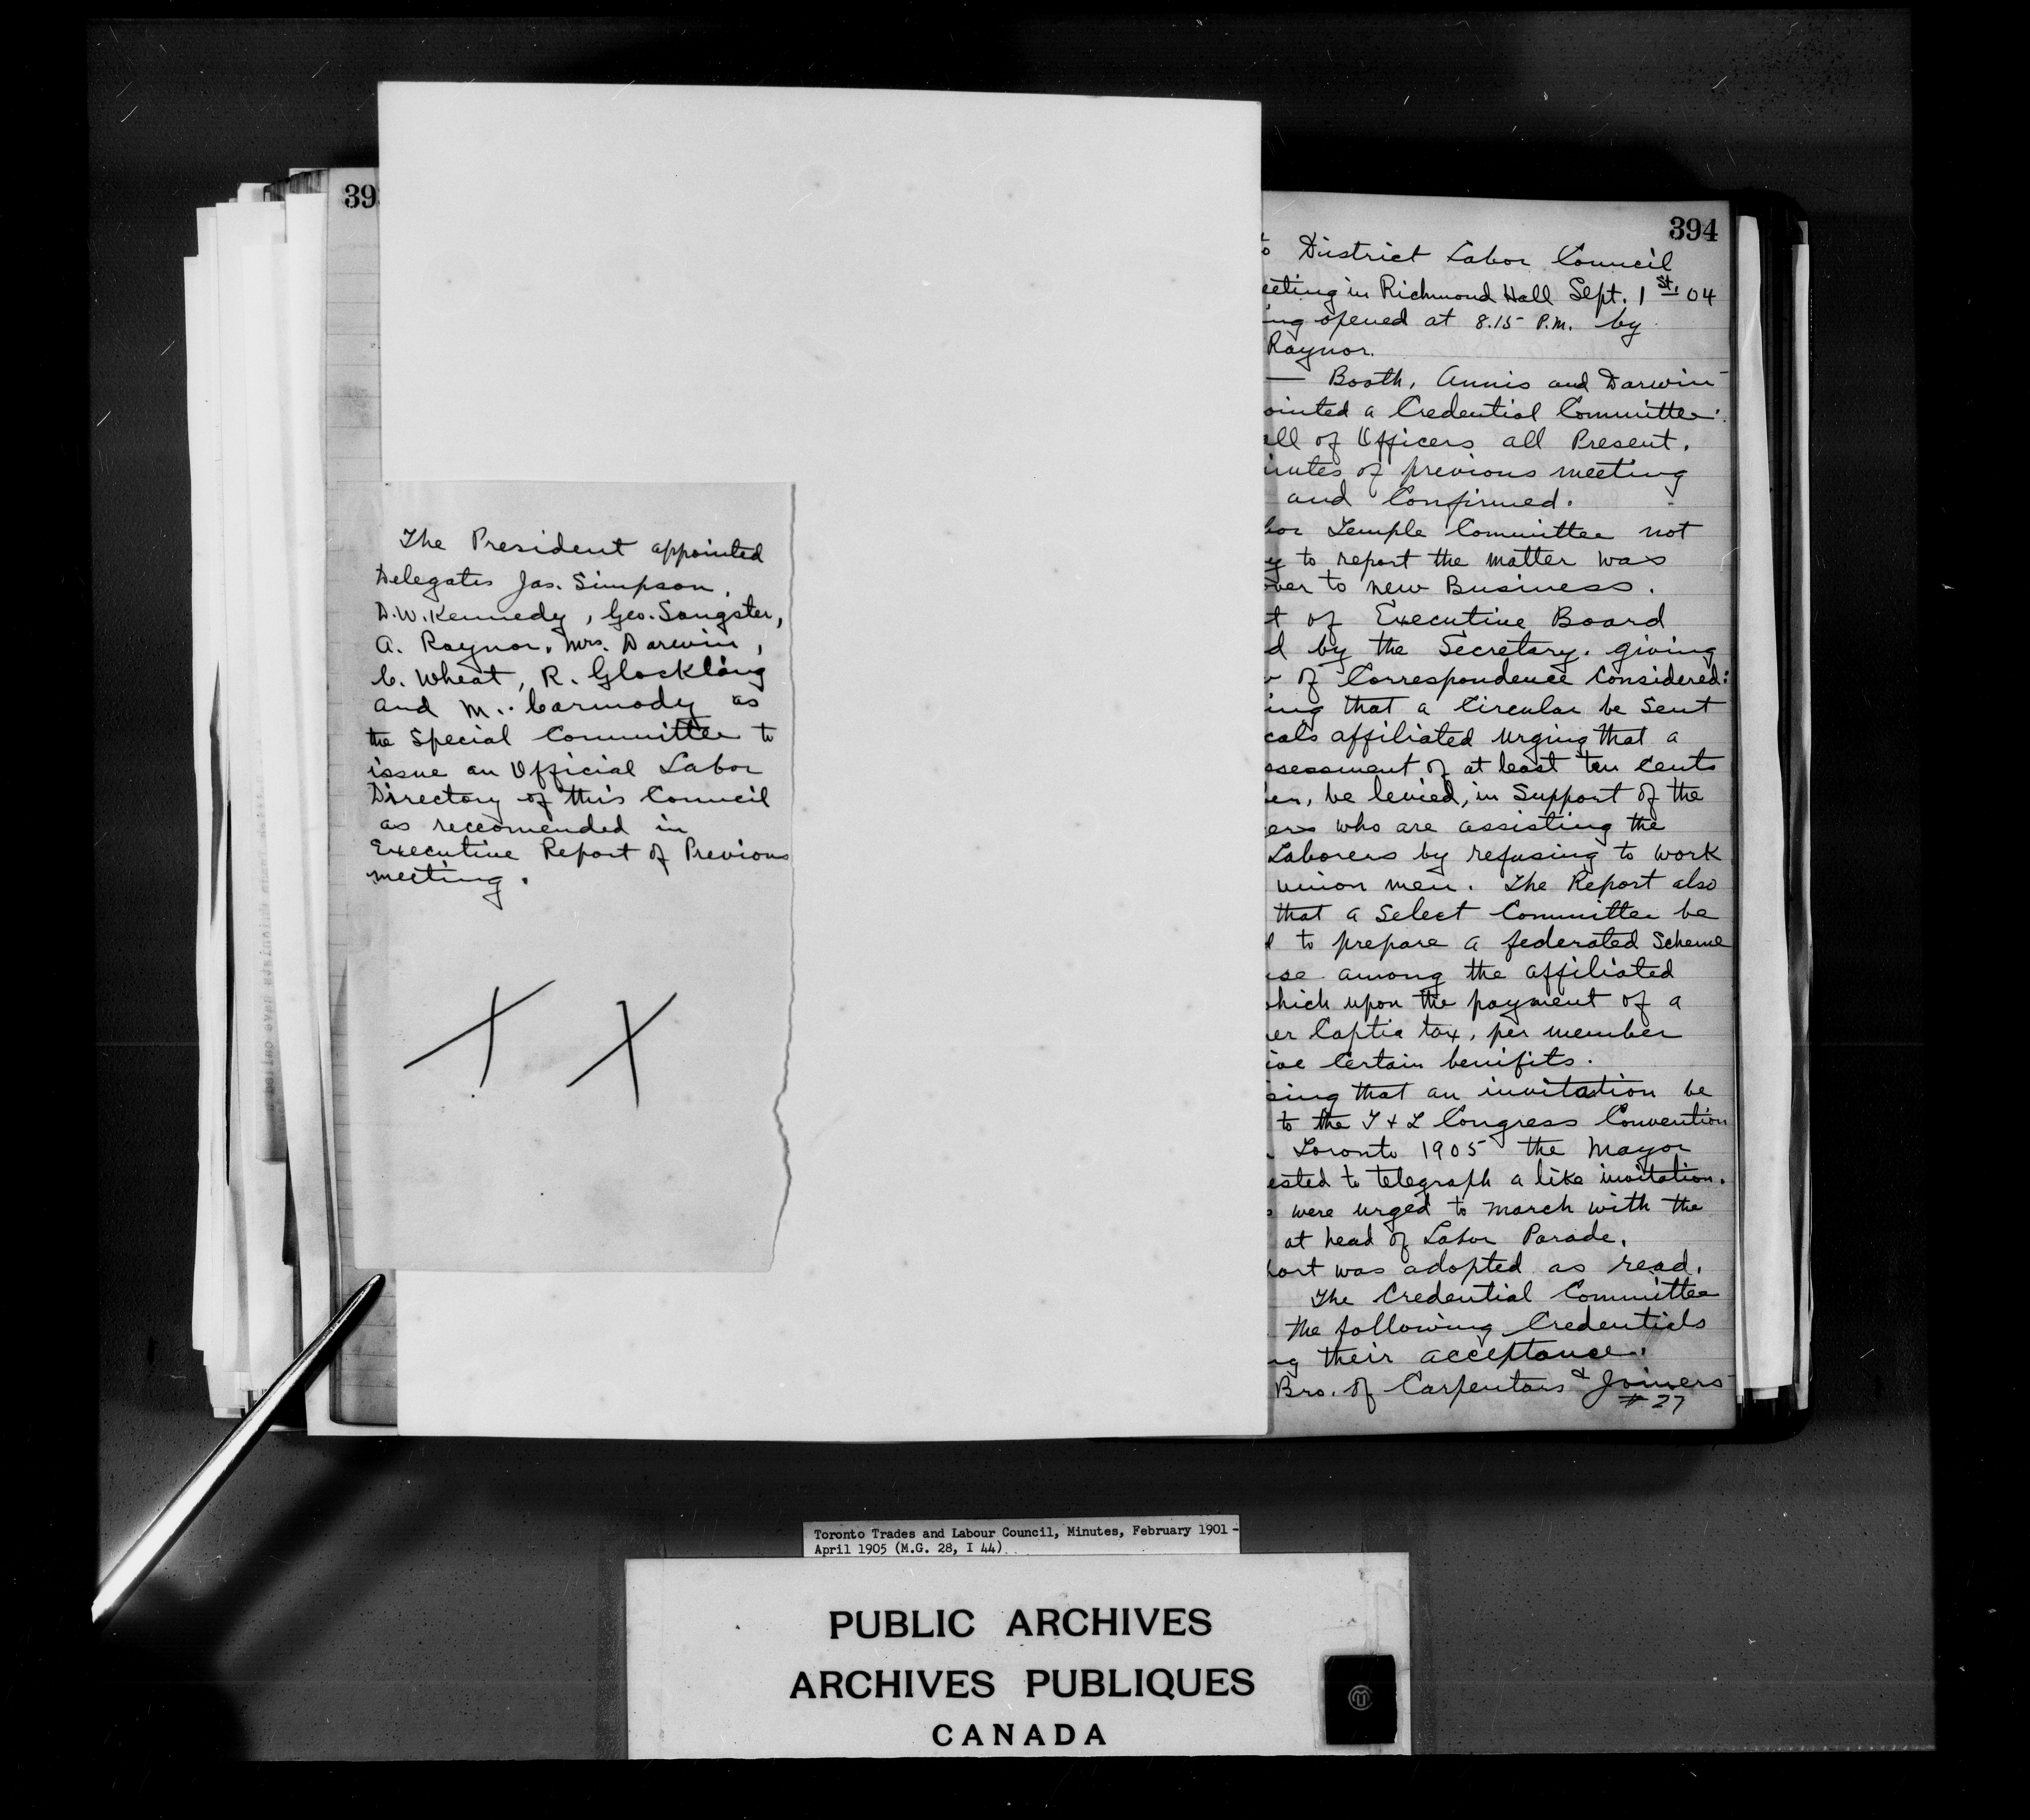 39
The President appointed
Delegates Jas. Simpson,
D.W. Kennedy, Geo. Sangster,
A. Raynor, Mrs. Darwin,
C. Wheat, R. Glockling
and M. Carmody as
the Special Committee to
issue an Official Labor
Directory of this Council
as reccomended in
Executive Report of Previous
meeting.
X X
394
to District Labor Council
eeting in Richmond Hall Sept. 1st, 04
ing opened at 8.15 P.M. by
Raynor.
— Booth, Annis and Darwin
ointed a Credential Committee.
all of Officers all Present.
inutes of previous meeting
and Confirmed.
bor Temple Committee not
y to report the matter was
over to new Business.
t of Executive Board
d by the Secretary. giving
of Correspondence Considered:
ing that a Circular be Sent
cals affiliated urging that a
ssessment of at least ten Cents
er, be levied, in Support of the
ers who are assisting the
Laborers by refusing to work
union men. The Report also
that a Select Committee be
d to prepare a federated Scheme
use among the affiliated
which upon the payment of a
er Captia tax, per member
ive Certain benifits.
sing that an invitation be
to the T & L Congress Convention
Toronto 1905 the Mayor
ested to telegraph a like invitation.
s were urged to march with the
at head of Labor Parade.
port was adopted as read.
The Credential Committee
the following Credentials
ng their acceptance.
Bro. of Carpentars & Joiners
# 27
Toronto Trades and Labour Council, Minutes, February 1901 -
April 1905 (M.G. 28, I 44)
PUBLIC ARCHIVES
ARCHIVES PUBLIQUES
CANADA